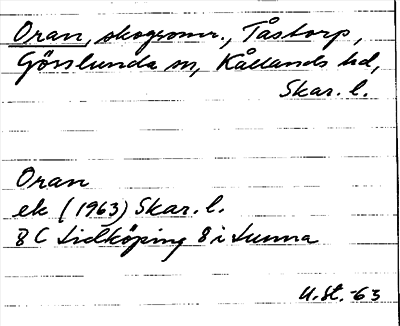 Oran, skogsomr., Tåstorp,
Gösslunda sn, Kållands hd,
Skar. l.
Oran
ek (1963) Skar. l.
8 C Lidköping 8 i Sunna
U.St. -63